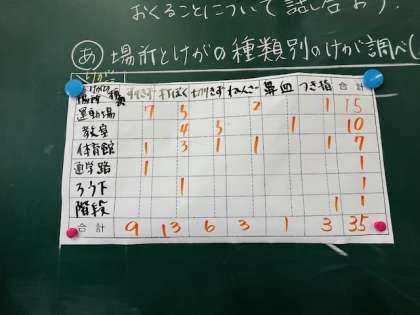 おくることについて話し合おう。
あ 場所とけがの種類別のけが調べ(
けが 場所 種類 すりきず 打ぼく 切りきず ねんざ 鼻血 つき指 合計
運動場 7 5 2 1 15
教室 4 5 1 10
体育館 1 3 1 1 1 7
通学路 1 1
ろう下 1 1
階段 1 1
合計 9 13 6 3 1 3 35